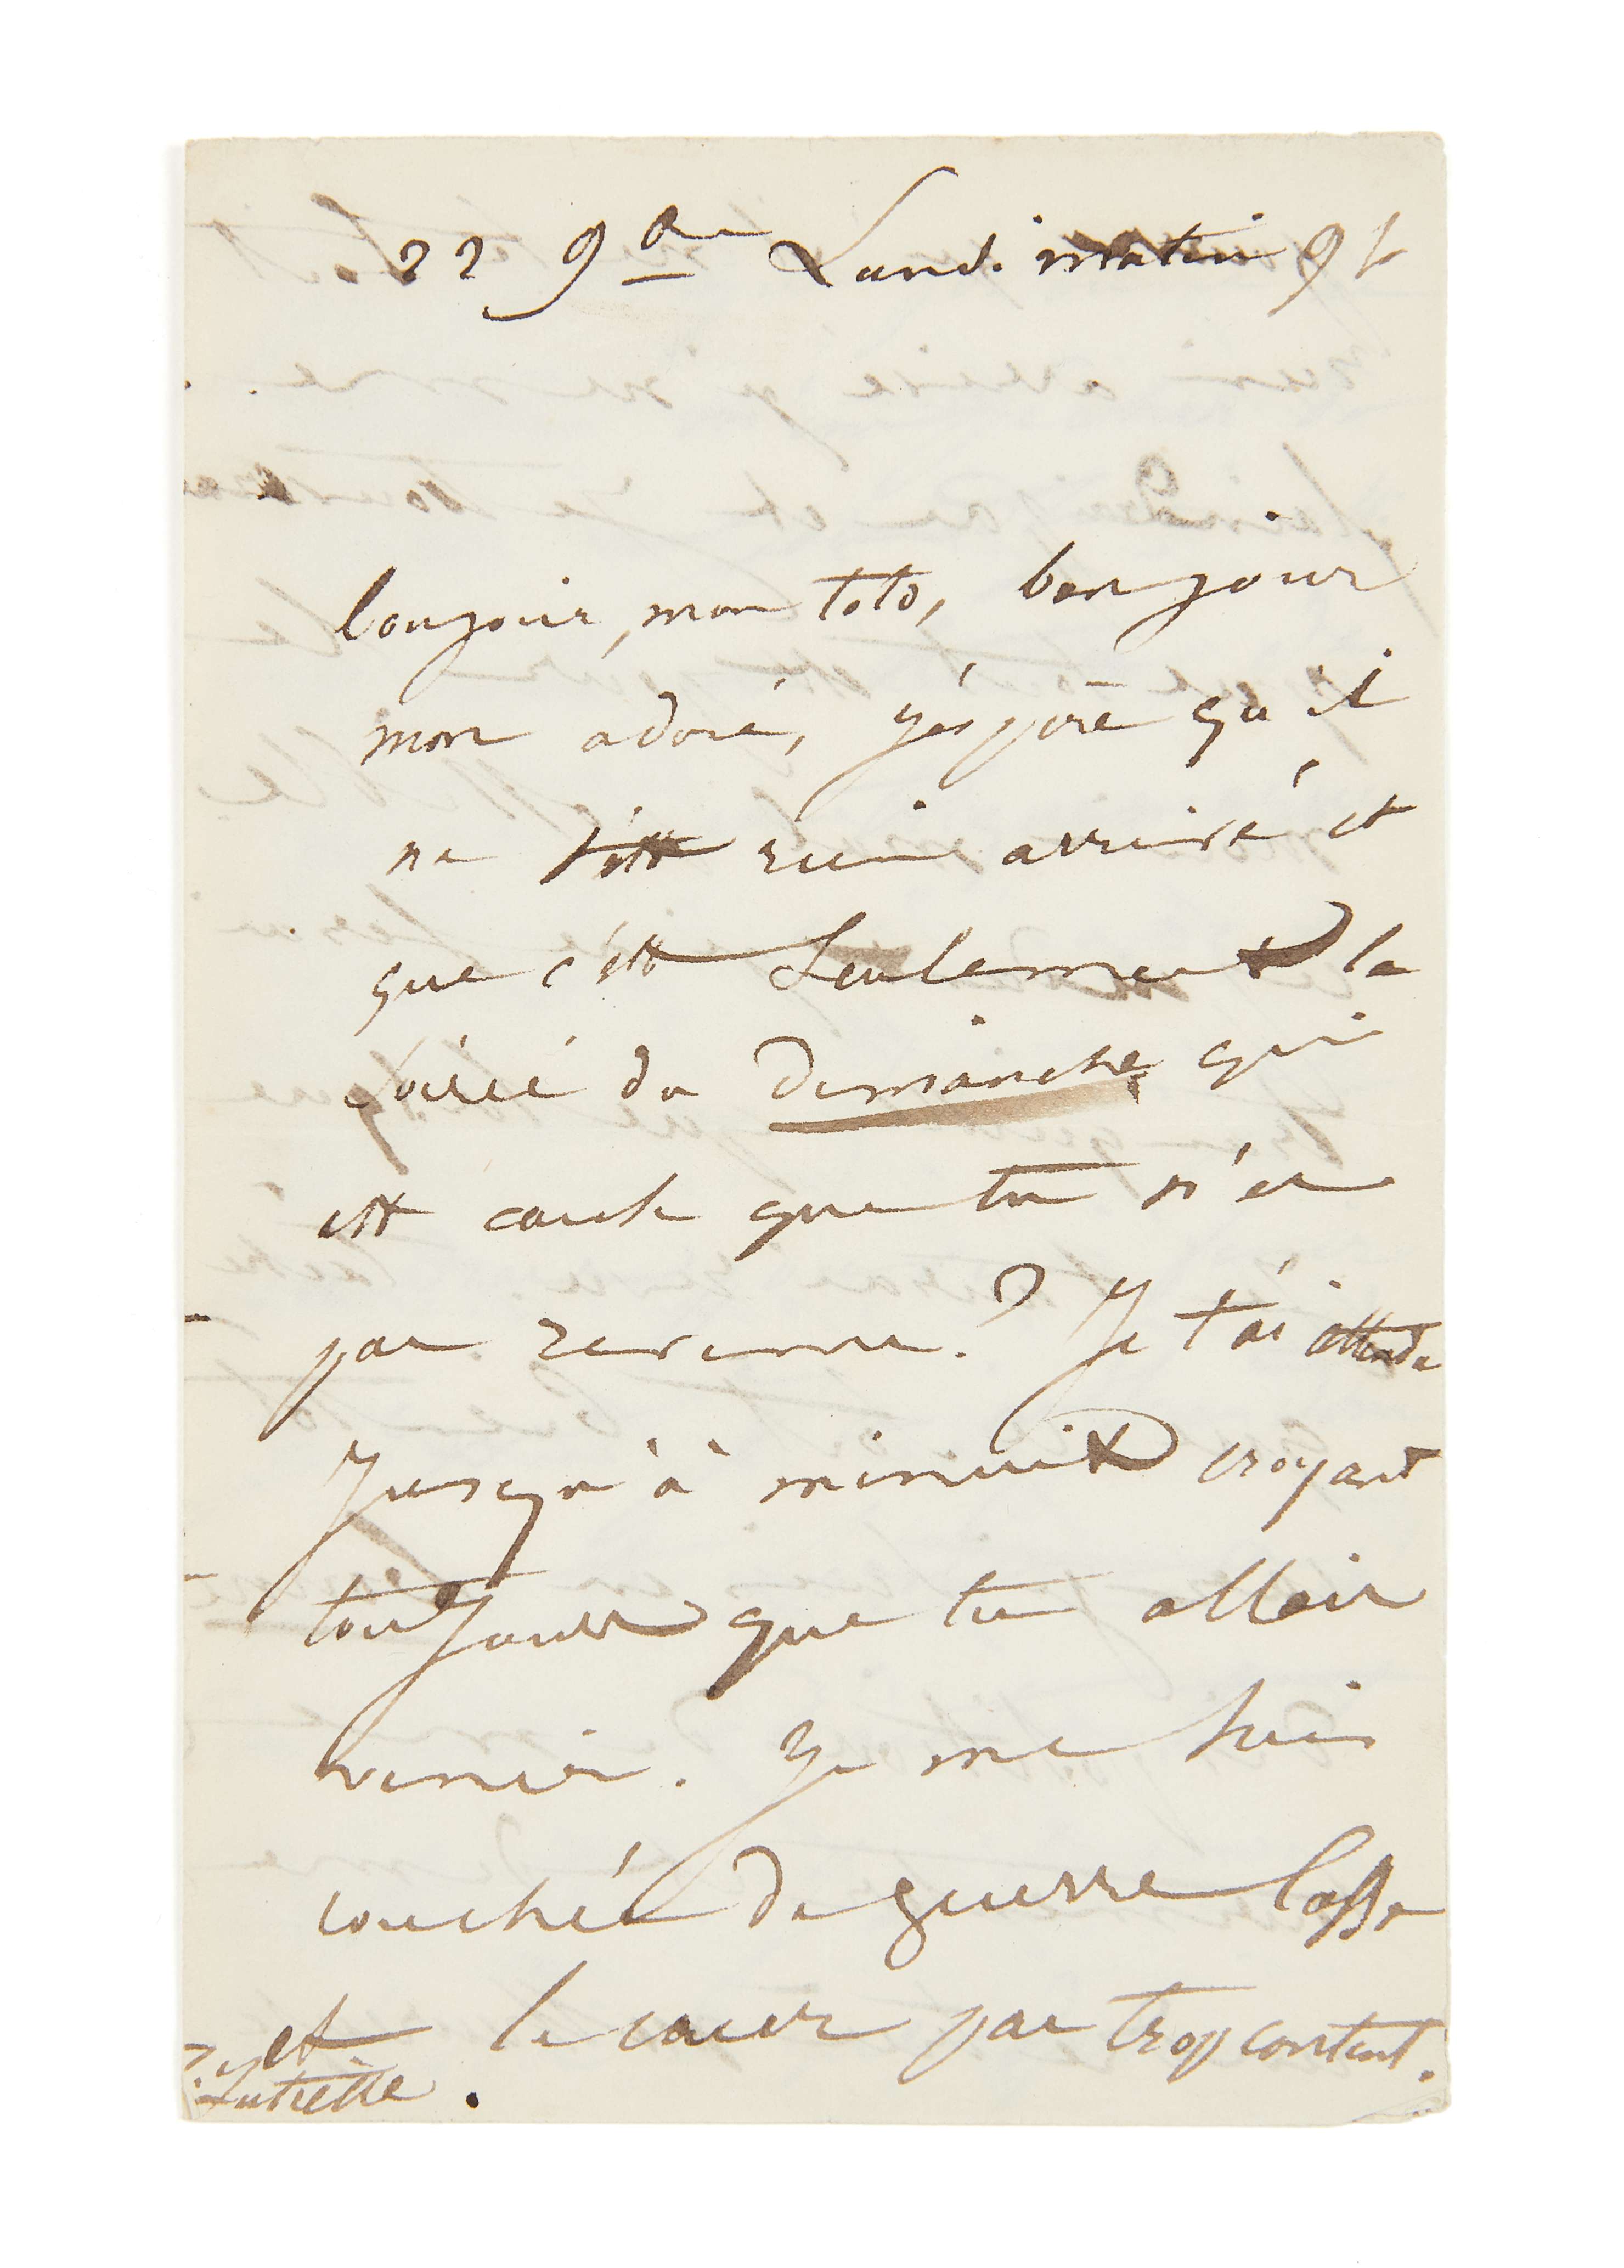 22 9bre Lundi matin 9 h
bonjour, mon toto, bonjour
mon adoré, j'espère qu'il
ne t'est rien arrivé et
que c'est seulement la
soirée du dimanche qui
est cause que tu n'es
pas revenu? Je t'ai attendu
jusqu'à minuit croyant
toujours que tu allais
venir. Je me suis
couchée de guerre lasse
et le cœur pas trop content.
Juliette.